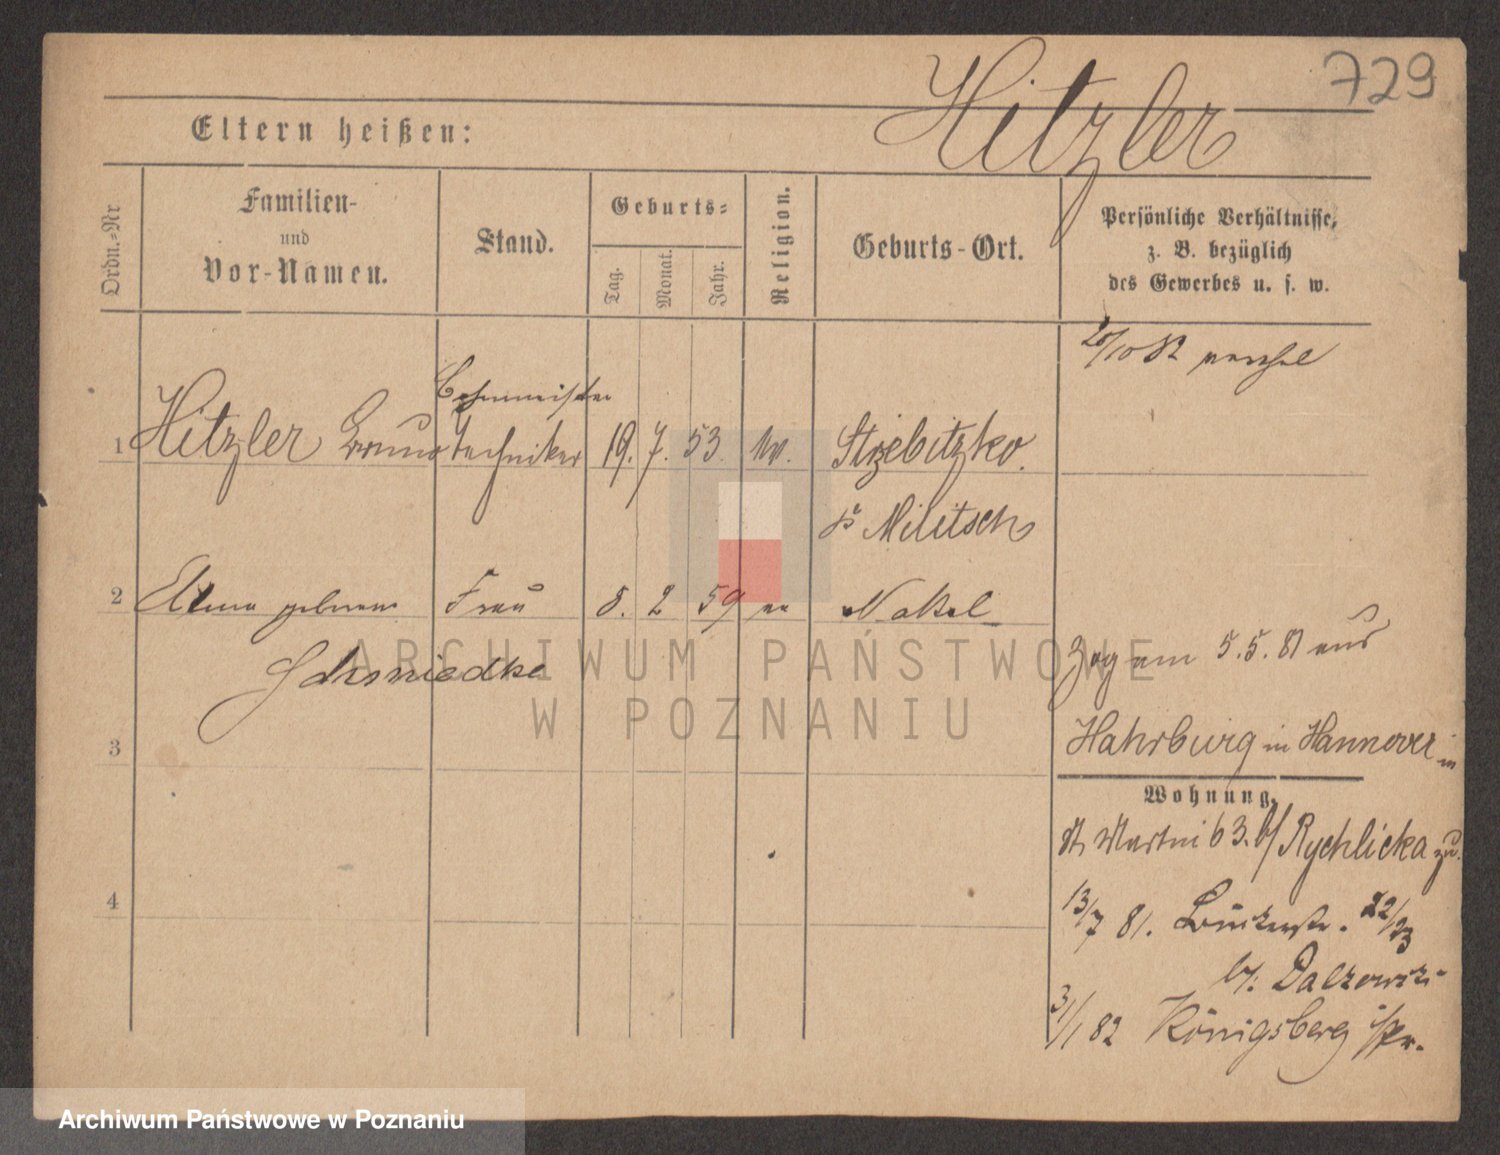 729
Hitzler
Eltern heißen:
Ordn.-Nr
Familien-
und
Vor-Namen.
Stand.
Geburts-
Tag.
Monat.
Jahr.
Religion.
Geburts-Ort.
Persönliche Verhältnisse,
z. B. bezüglich
des Gewerbes u. s. w.
20/10 82
1 Hitzler Bruno Techniker 19. 7. 53. Strzebitzko.
Militsch
2 geborene Frau 8. 2 59 Nakel
Schmiedke
3
4
Zog am 5.5.81 aus
Hahrburg in Hannover in
Wohnung.
St Martin 63. b/ Rychlicka zu.
13/7 81. 22/23
b/. Dalkowski
3/1 82 Königsberg i/Pr.
ARCHIWUM PAŃSTWOWE
W POZNANIU
Archiwum Państwowe w Poznaniu